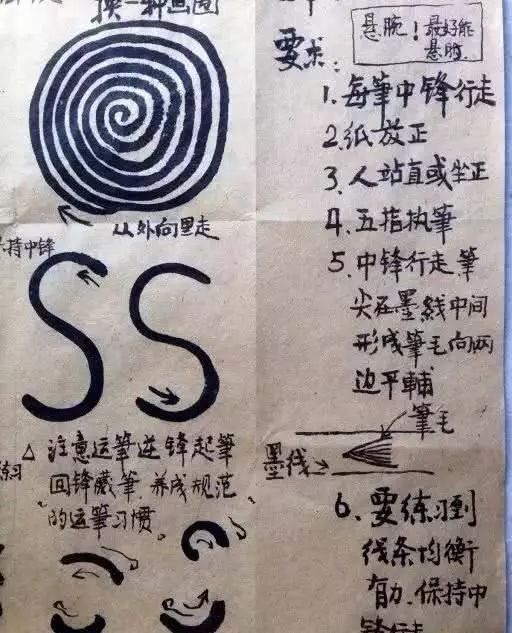 换一种画圈
从外向里走
持中锋
△ 注意运筆逆锋起筆
回锋藏筆 养成规范
的运筆习惯。
练习
悬腕！最好能
悬肘.
要求：
1. 每筆中锋行走
2. 纸放正
3. 人站直或坐正
4. 五指执筆
5. 中锋行走筆
尖在墨线中间
形成筆毛向两
边平輔
筆毛
墨线
6. 要练习到
线条均衡
有力.保持中
锋行走